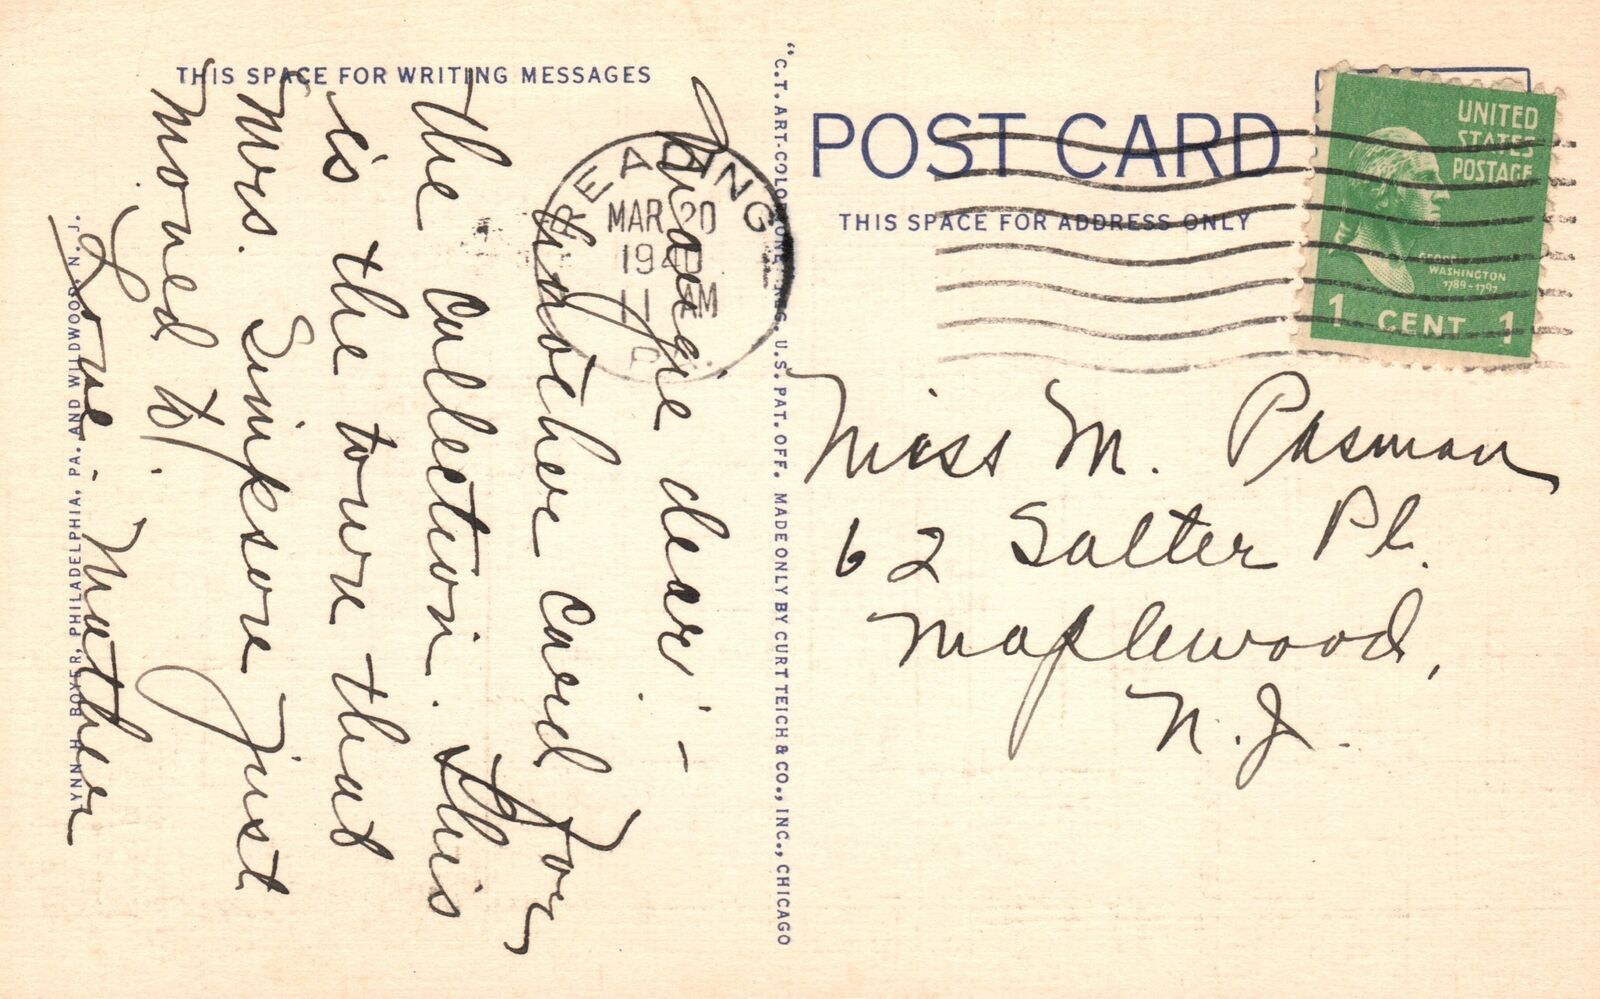 THIS SPACE FOR WRITING MESSAGES
Margie dear -
Another card for
the collection. This
is the town that
Mrs. Sinksore just
moved to.
Love, Mother
READING
MAR 20
1940
11 AM
PA.
LYNN H. BOYER, PHILADELPHIA, PA. AND WILDWOOD, N. J.
"C.T. ART-COLORTONE" REG. U.S. PAT. OFF. MADE ONLY BY CURT TEICH & CO., INC., CHICAGO
POST CARD
THIS SPACE FOR ADDRESS ONLY
UNITED
STATES
POSTAGE
GEORGE
WASHINGTON
1789-1797
1 CENT 1
Miss M. Pasman
62 Salter Pl.
Maplewood,
N. J.